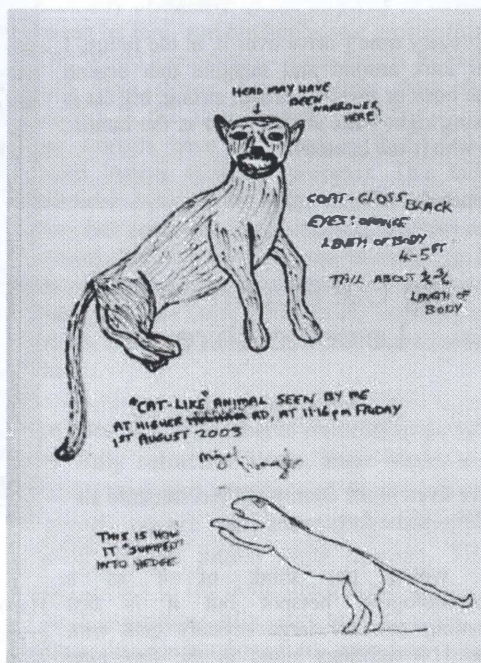 HEAD MAY HAVE
BEEN
NARROWER
HERE!
COAT - GLOSS BLACK
EYES: ORANGE
LENGTH OF BODY
4-5FT
TAIL ABOUT ½-¾
LENGTH OF
BODY
"CAT-LIKE" ANIMAL SEEN BY ME
AT HIGHER RD, AT 11·16pm FRIDAY
1ST AUGUST 2003
THIS IS HOW
IT "JUMPED"
INTO HEDGE